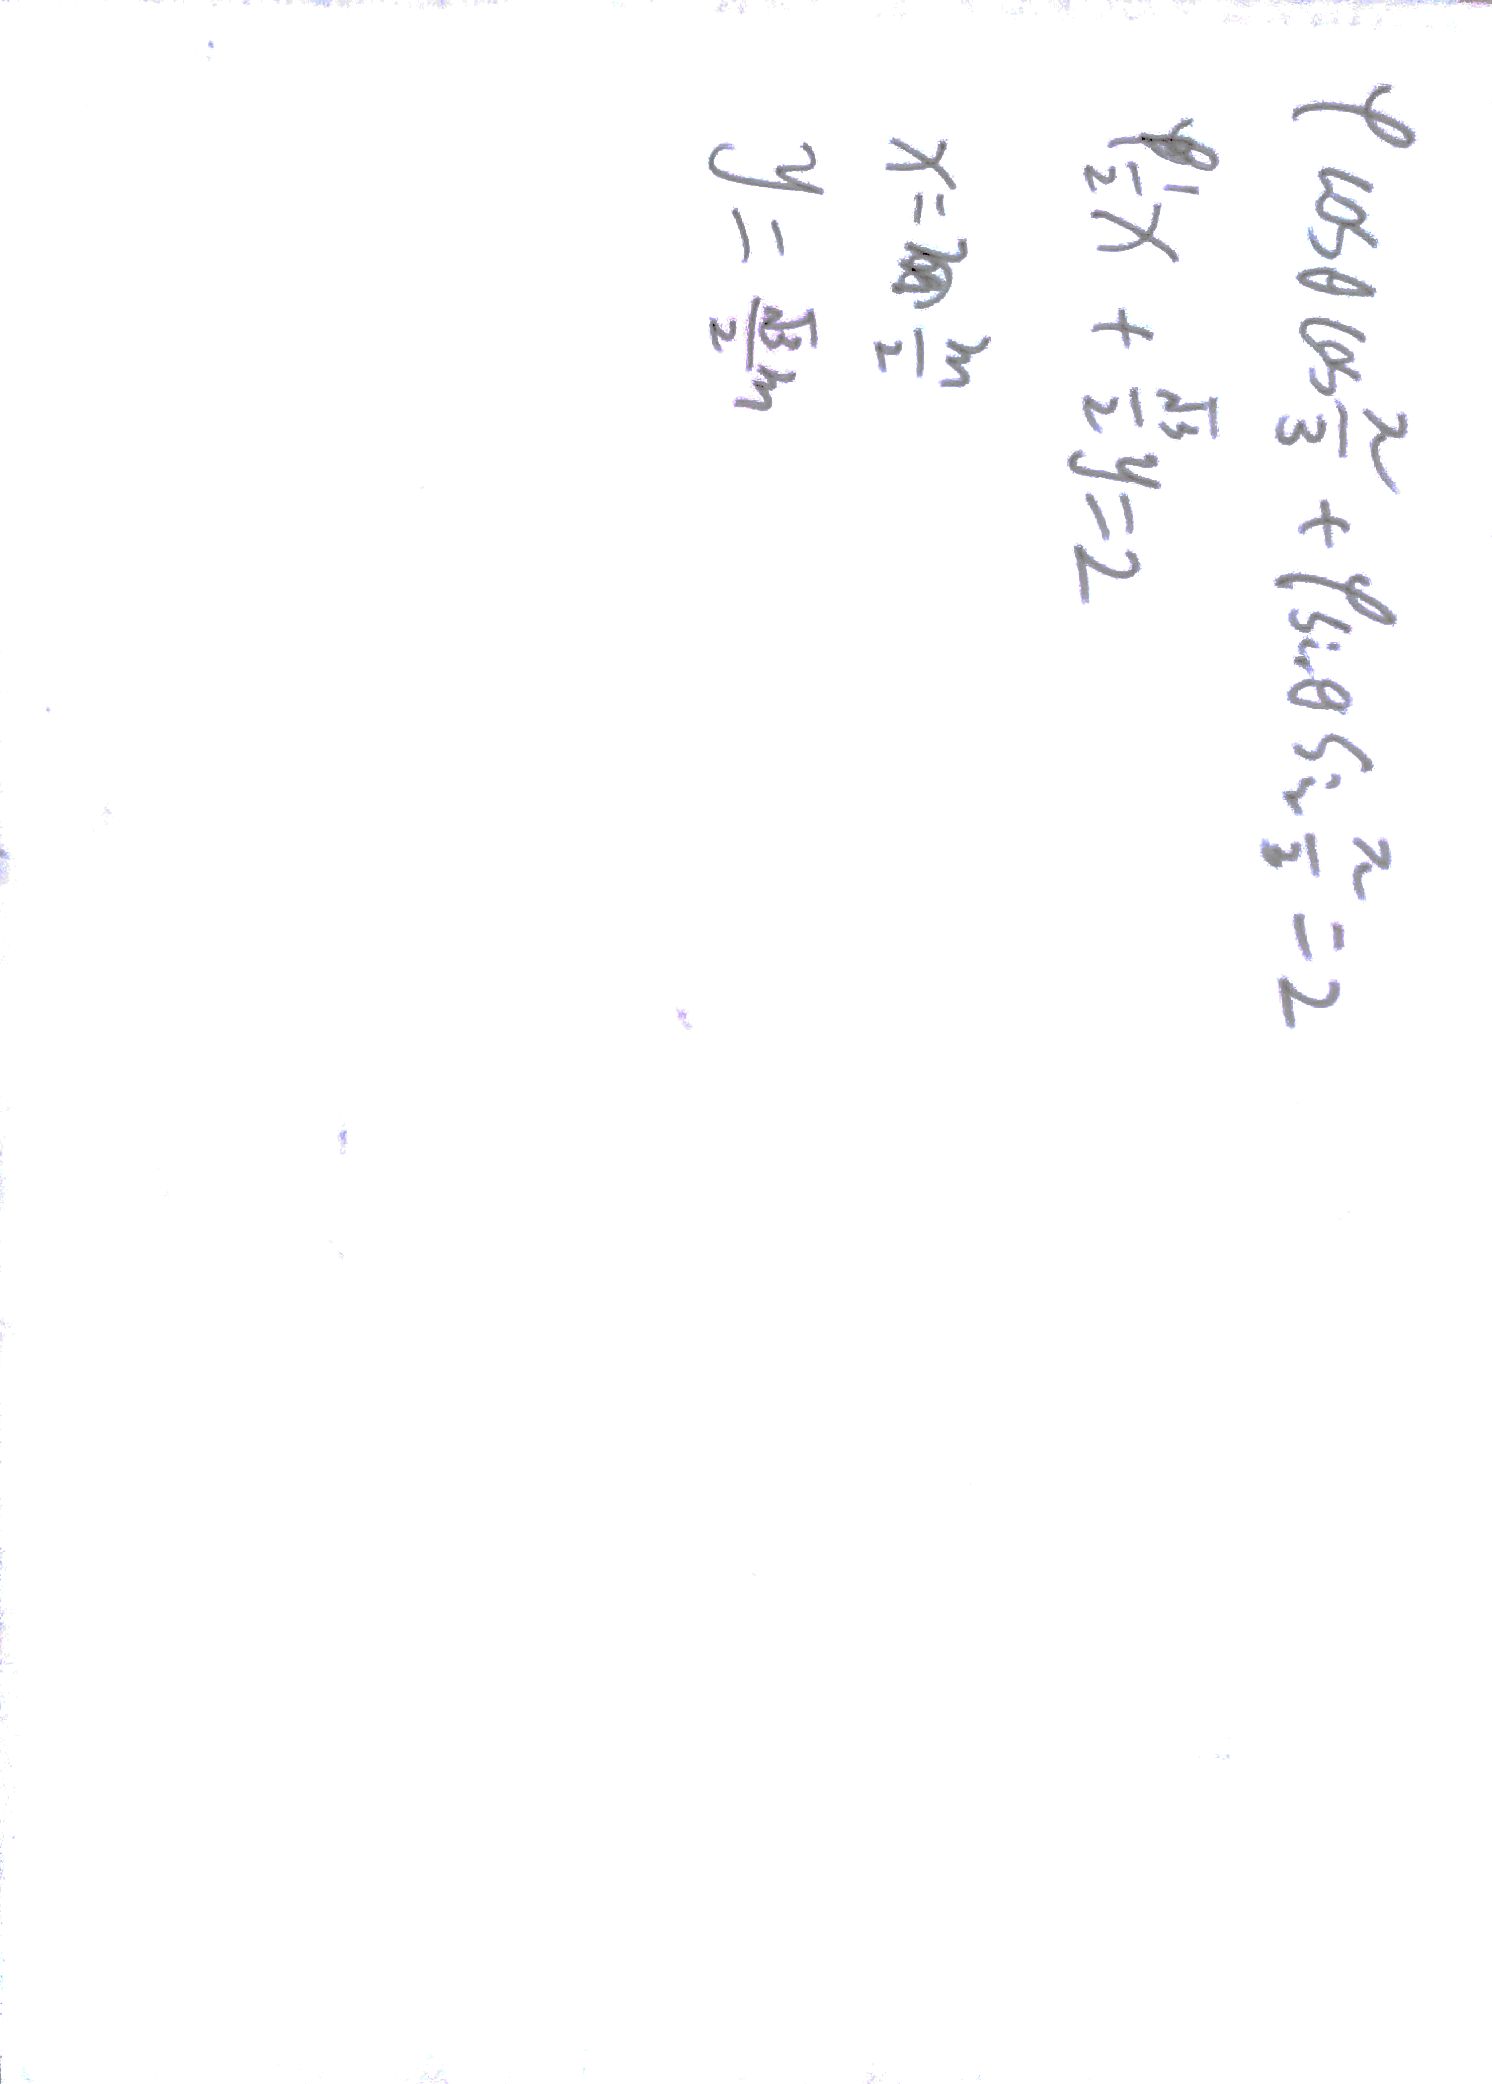 ρ cosθ cos π/3 + ρ sinθ sin π/3 = 2
1/2 x + √3/2 y = 2
x = m/2
y = √3/2 m